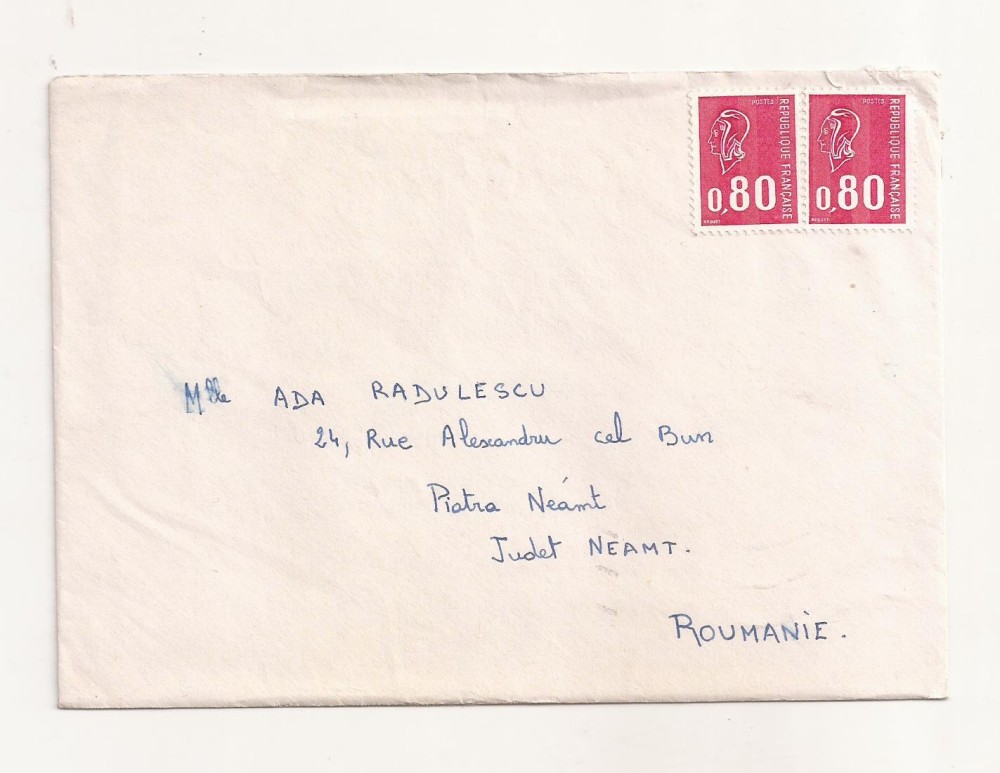 POSTES POSTES
RÉPUBLIQUE FRANÇAISE RÉPUBLIQUE FRANÇAISE
0,80 0,80
BEQUET BEQUET
Mlle ADA RADULESCU
24, Rue Alexandru cel Bun
Piatra Neámt
Judet NEAMT.
ROUMANIE.